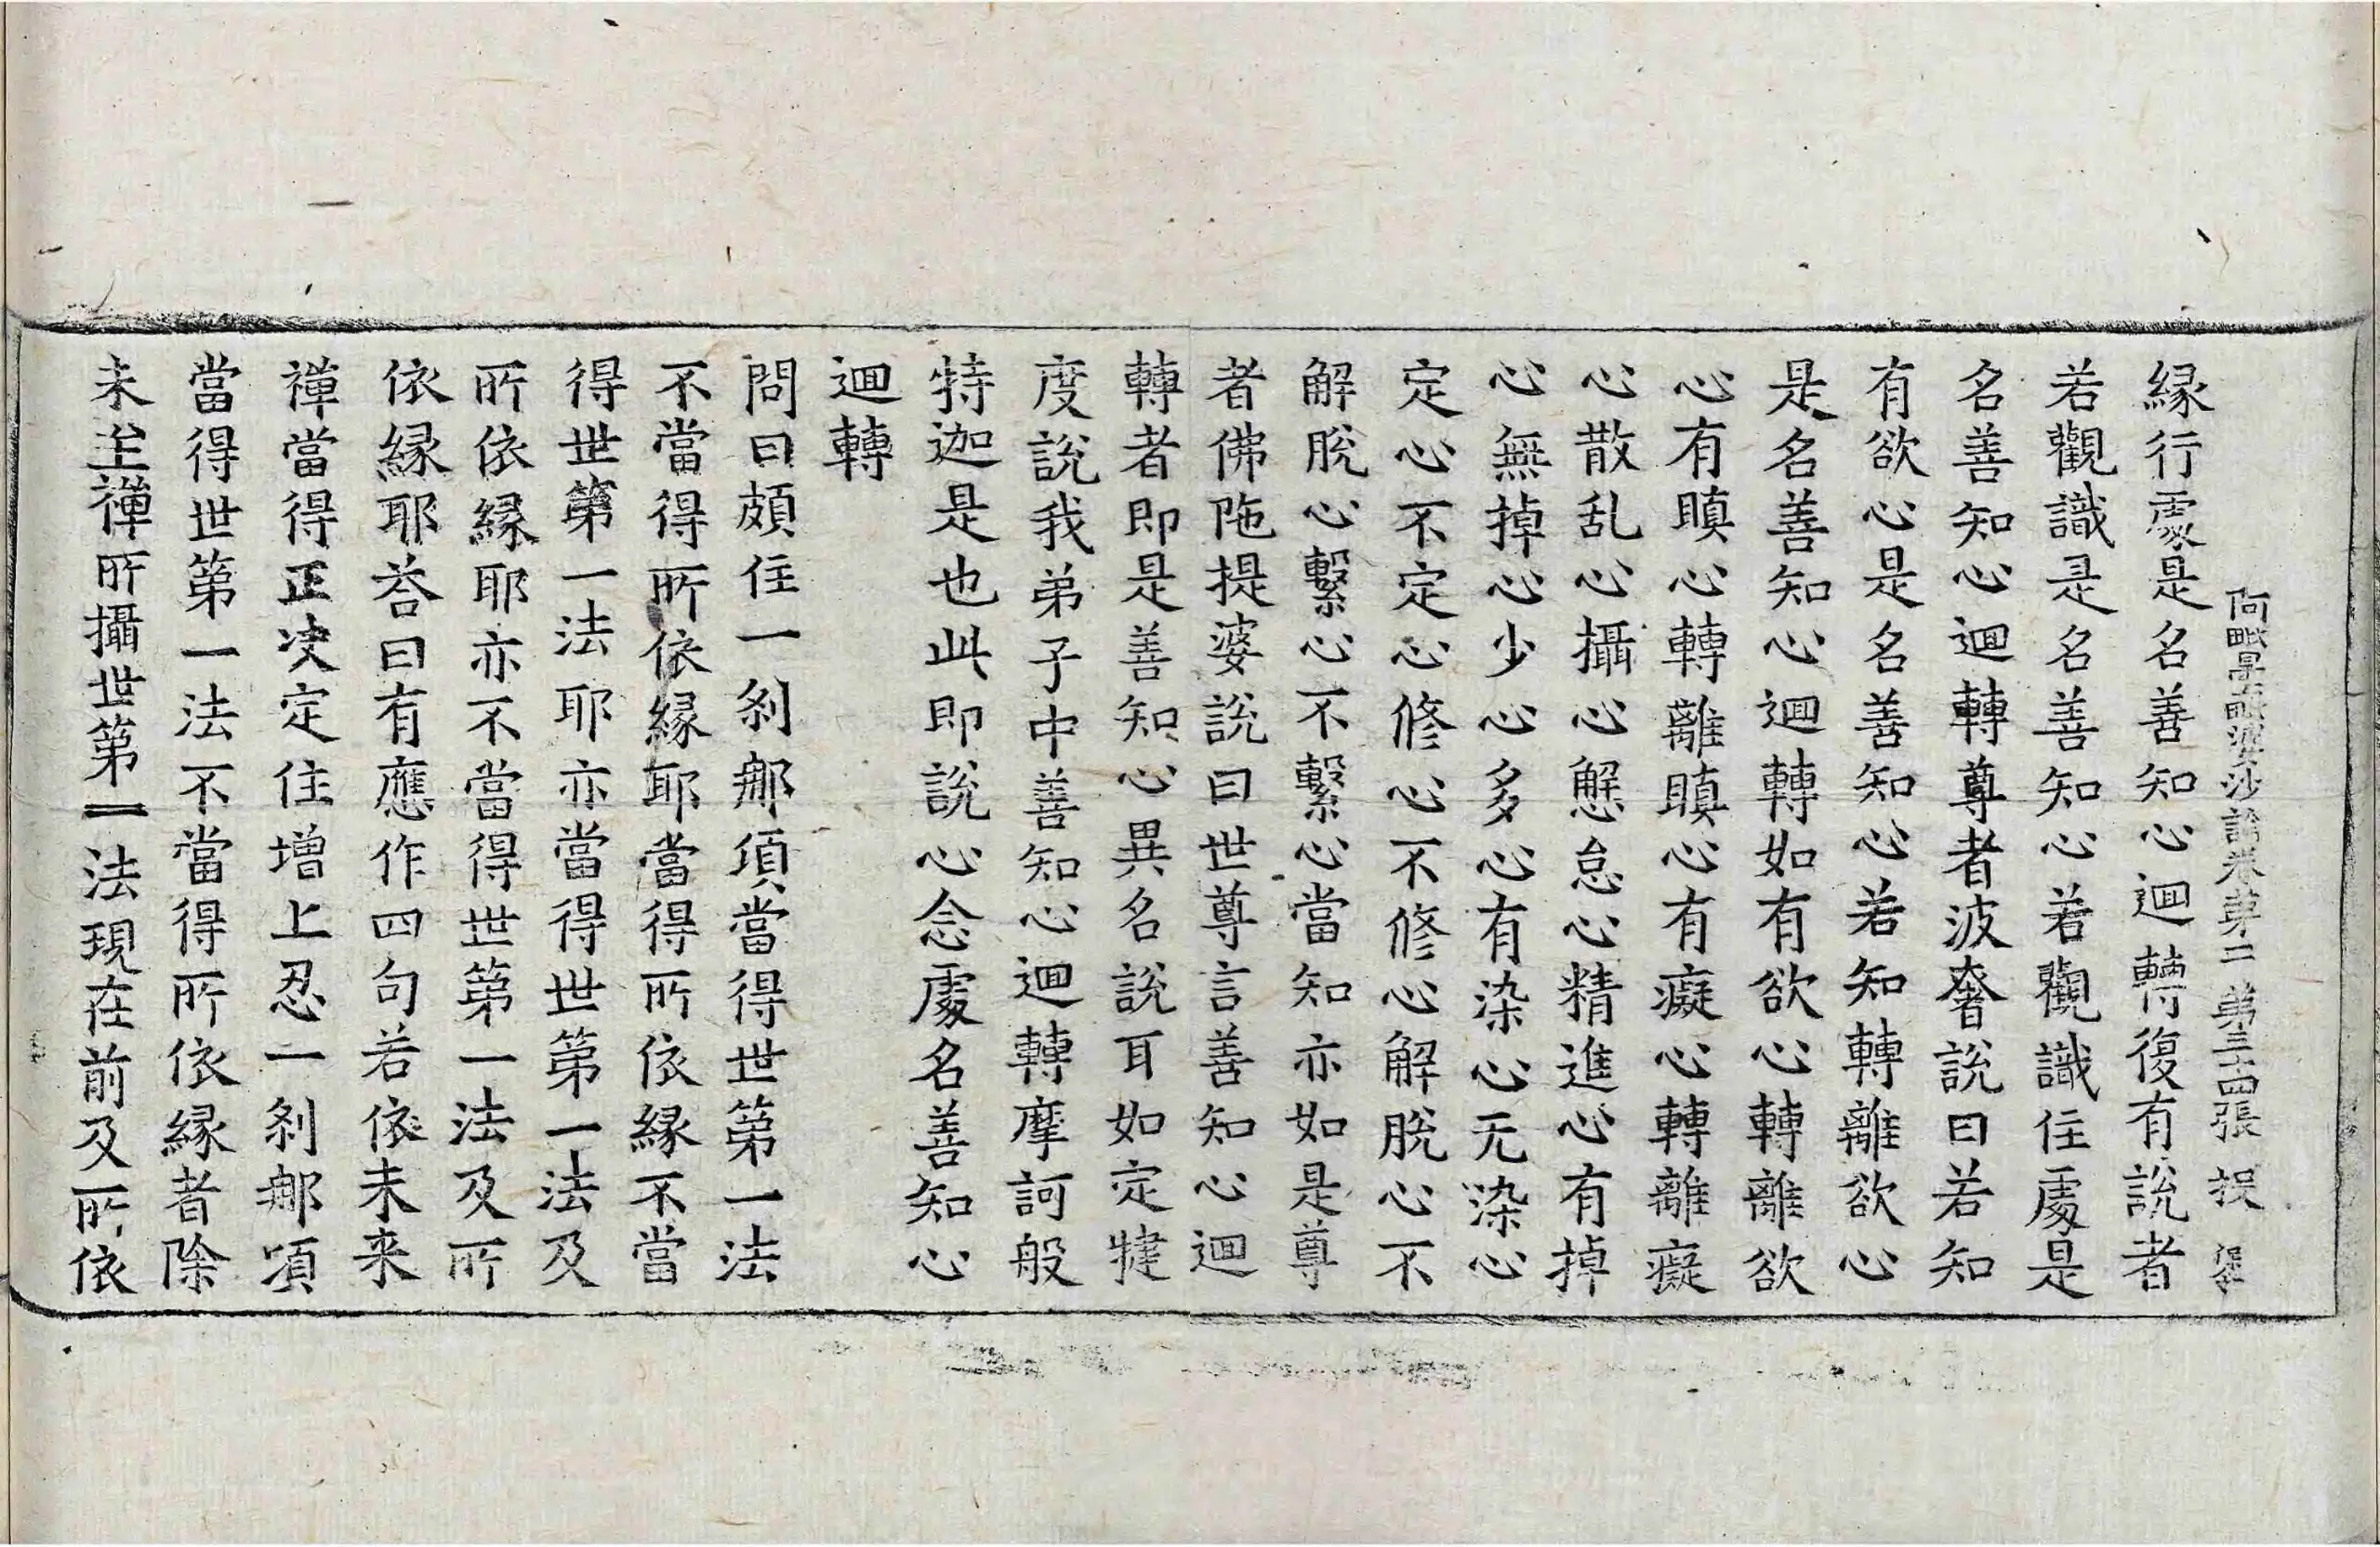 阿毗曇毗婆沙論卷第二 第三十四張 投
縁行處是名善知心迴轉復有說者
若觀識是名善知心若觀識住處是
名善知心迴轉尊者波奢說曰若知
有欲心是名善知心若知轉離欲心
是名善知心迴轉如有欲心轉離欲
心有瞋心轉離瞋心有癡心轉離癡
心散乱心攝心懈怠心精進心有掉
心無掉心少心多心有染心无染心
定心不定心修心不修心解脫心不
解脫心繫心不繫心當知亦如是尊
者佛陁提婆說曰世尊言善知心迴
轉者即是善知心異名說耳如定犍
度說我弟子中善知心迴轉摩訶般
特迦是也此即說心念處名善知心
迴轉
問曰頗住一剎那頃當得世第一法
不當得所依縁耶當得所依縁不當
得世第一法耶亦當得世第一法及
所依縁耶亦不當得世第一法及所
依縁耶荅曰有應作四句若依未来
禅當得正决定住增上忍一剎那頃
當得世第一法不當得所依縁者除
未至禅所攝世第一法現在前及所依